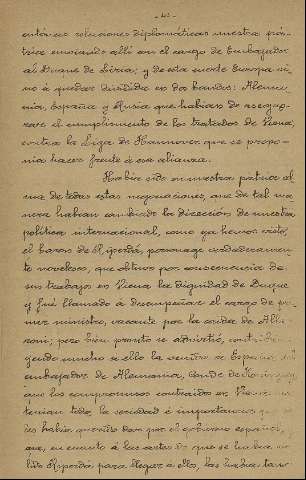 - 42 -
entónces relaciones diplomáticas nuestra pá-
tria enviando allí con el cargo de Embajador
al Duque de Liria; y de esta suerte Europa vi-
no á quedar dividida en dos bandos: Alema-
nia, España y Rusia que habían de asegu-
rarse el cumplimiento de los tratados de Viena,
contra la Liga de Hannover que se propo-
nía hacer frente á esa alianza.
Había sido en nuestra patria al
ma de todas estas negociaciones, que de tal ma
nera habían cambiado la dirección de nuestra
política internacional, como ya hemos visto,
el baron de Riperdá, personage verdaderamen-
te novelesco, que obtuvo por consecuencia de
sus trabajos en Viena la dignidad de Duque
y fué llamado á desempeñar el cargo de pri-
mer ministro, vacante por la caida de Albe-
roni; pero bien pronto se advirtió, contribu-
yendo mucho á ello la venida á España del
embajador de Alemania, Conde de
que los compromisos contraidos en Viena no
tenían toda la seriedad é importancia que
les había querido dar por el gobierno español,
que, en cuanto á las artes de que se había va-
lido Riperdá para llegar á ello, las había tan